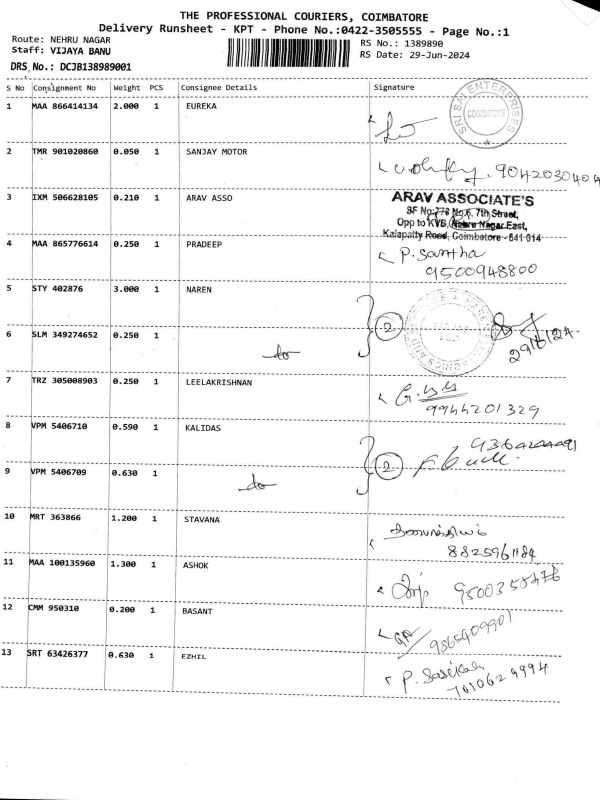 THE PROFESSIONAL COURIERS, COIMBATORE
Delivery Runsheet - KPT - Phone No.:0422-3505555 - Page No.:1
Route: NEHRU NAGAR
Staff: VIJAYA BANU
RS No.: 1389890
RS Date: 29-Jun-2024
DRS No.: DCJB138989001
S No Consignment No Weight PCS Consignee Details Signature
1 MAA 866414134 2.000 1 EUREKA
SRI SAI ENTERPRISES
COIMBATORE
2 TMR 901020860 0.050 1 SANJAY MOTOR
9042030404
3 IXM 506628105 0.210 1 ARAV ASSO
ARAV ASSOCIATE'S
SF No:778 No.6, 7th Street,
Opp to KVB, Nehru Nagar East,
Kalapatty Road, Coimbatore - 641 014
4 MAA 865776614 0.250 1 PRADEEP
P. Santha
9500948800
5 STY 402876 3.000 1 NAREN
2
29/6/24
6 SLM 349274652 0.250 1
do
7 TRZ 305008903 0.250 1 LEELAKRISHNAN
9944201329
8 VPM 5406710 0.590 1 KALIDAS
2
9 VPM 5406709 0.630 1
do
10 MRT 363866 1.200 1 STAVANA
8825961184
11 MAA 100135960 1.300 1 ASHOK
9500358476
12 CMM 950310 0.200 1 BASANT
9865909901
13 SRT 63426377 0.630 1 EZHIL
P. Sasikala